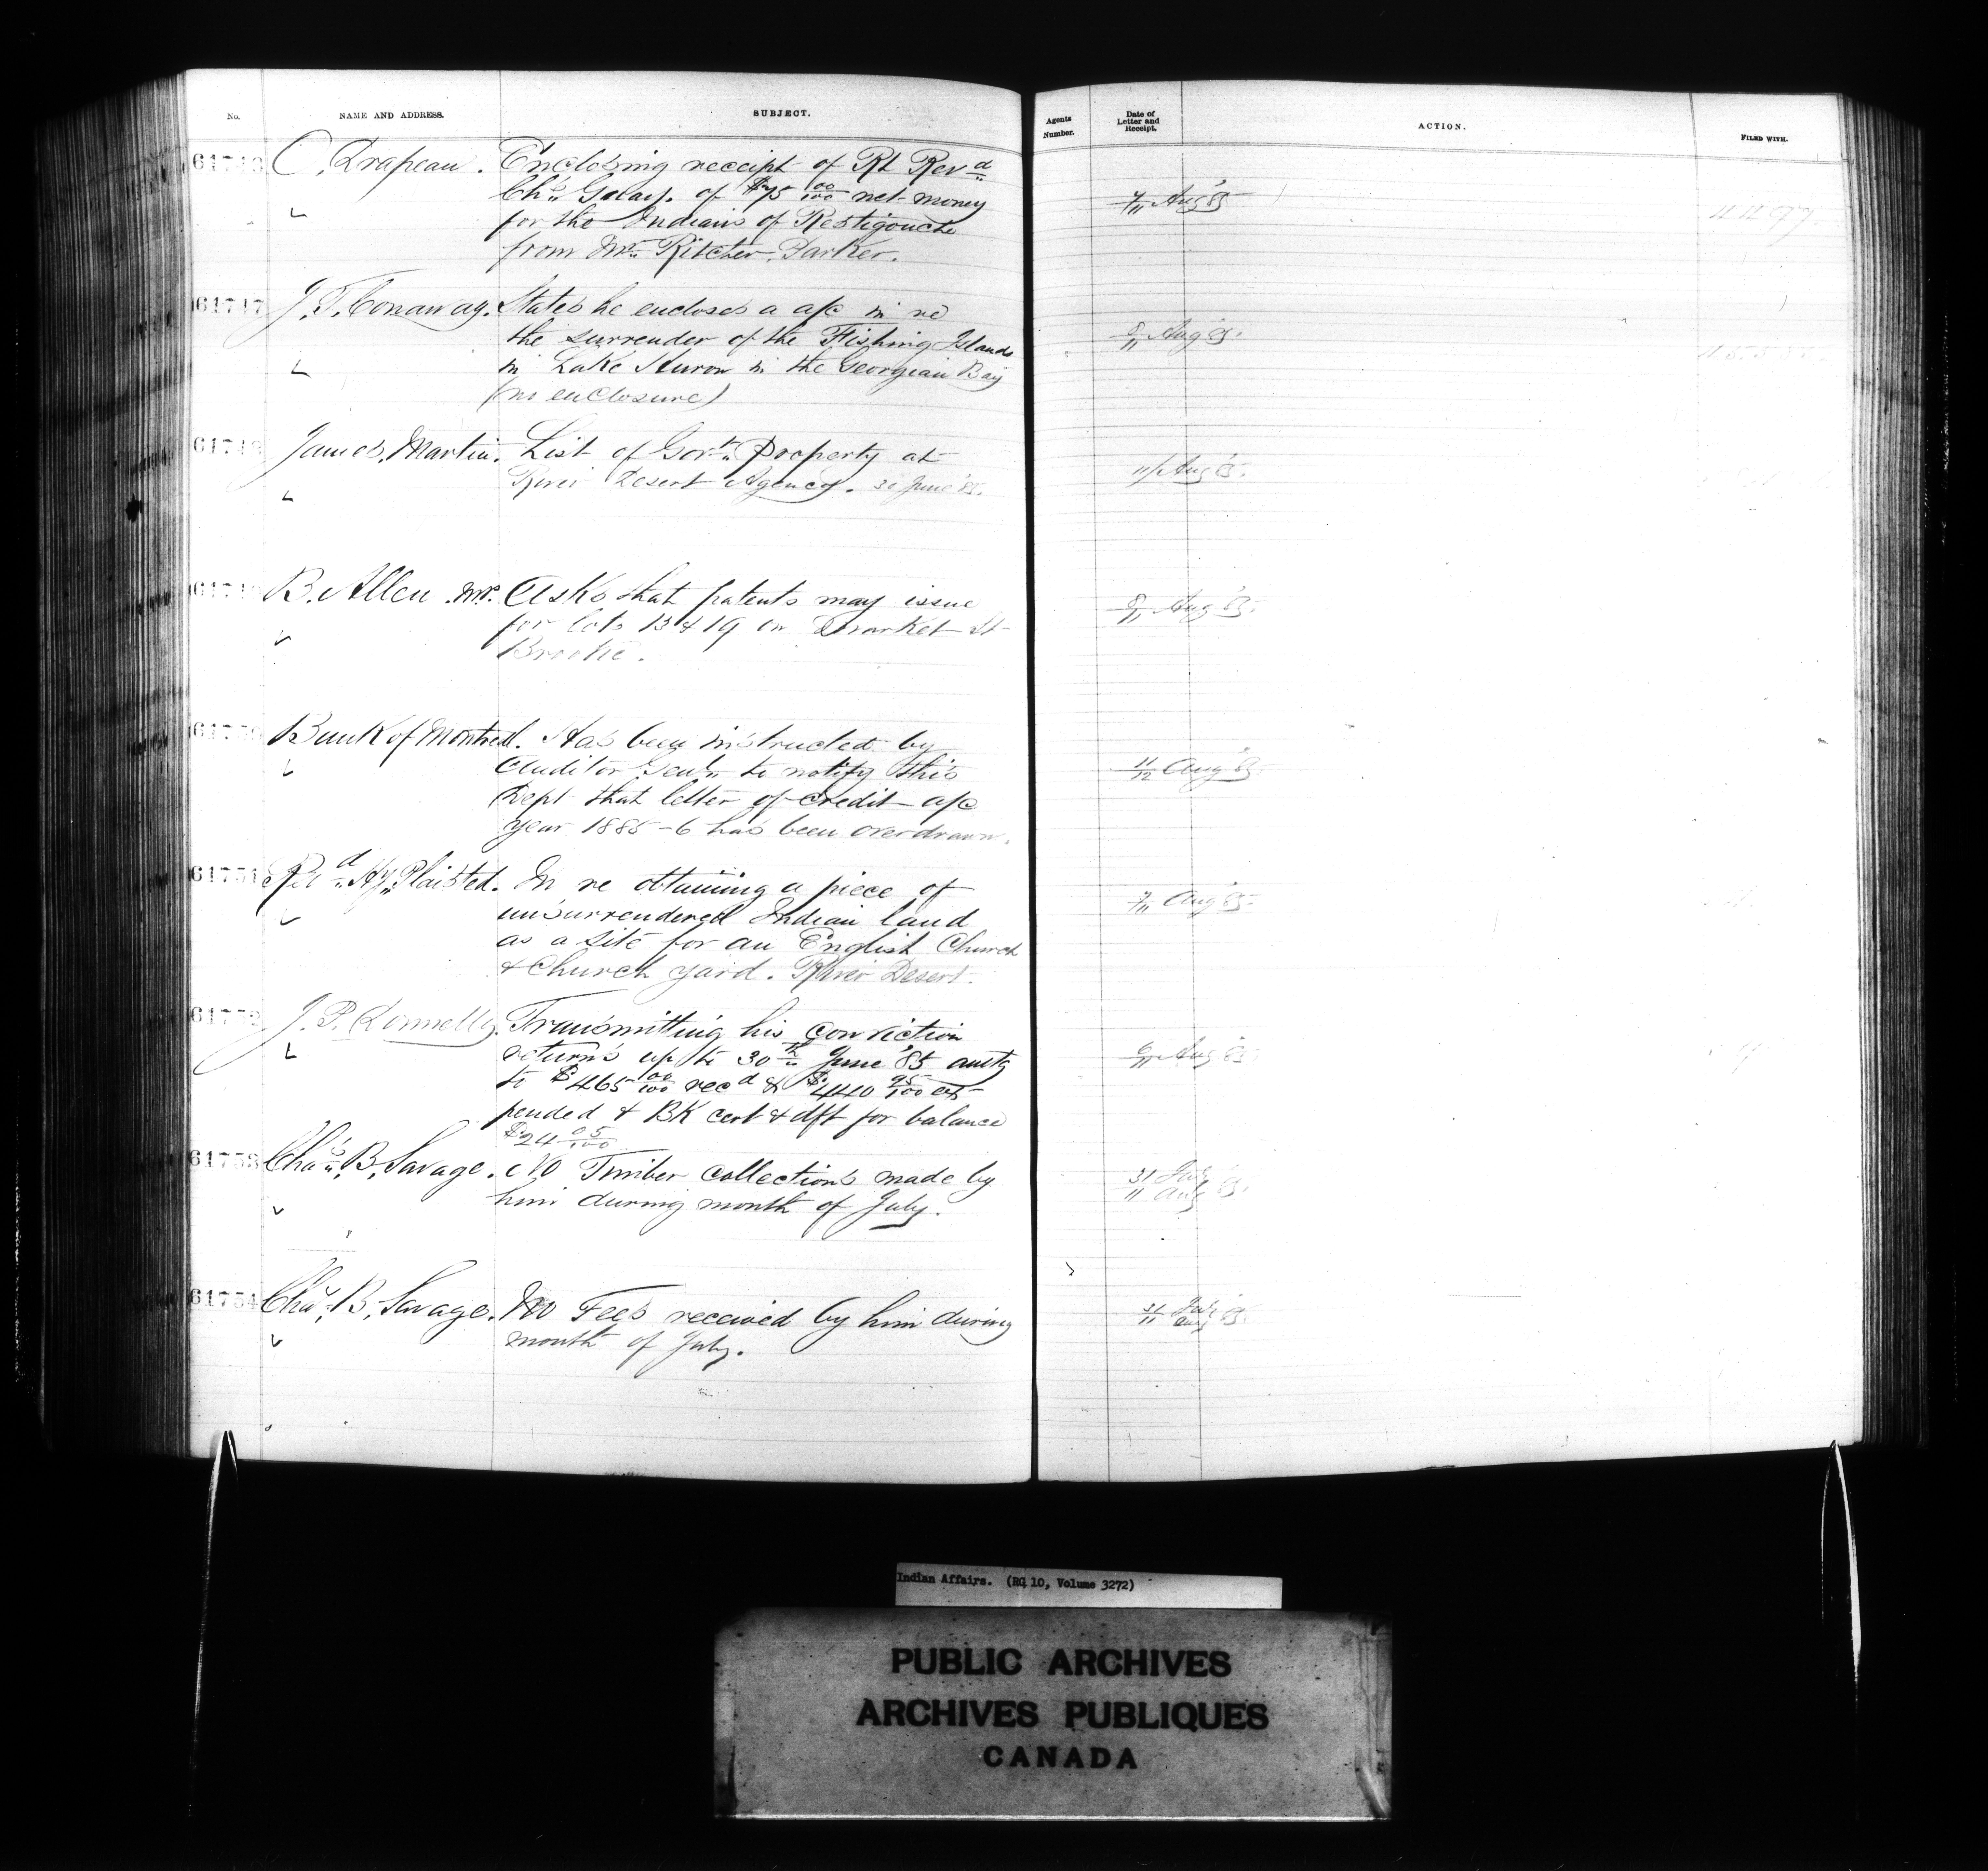 No. NAME AND ADDRESS. SUBJECT. Agents Number. Date of Letter and Receipt. ACTION. FILED WITH.
61746 C. Drapeau. Enclosing receipt of Rt Revd
Chs of $75 00/100 net money
for the Indians of Restigouche
from Mr Ritcher. Parker.
7/11 Aug '85
4497
61747 J. T. Conaway. States he encloses a a/c in re
the surrender of the Fishing Islands
in Lake Huron in the Georgian Bay
(no enclosure)
8/11 Aug '85.
61748 James Martin. List of Govt. Property at
River Desert Agency. 30 June '85.
11/ Aug '85.
61749 B. Allen Mr. Asks that patents may issue
for lots 13 & 19 on Market St
Brooke.
8/11 Aug '85.
61750 Bank of Montreal. Has been instructed by
Auditor Genl. to notify this
Dept that letter of credit a/c
year 1885-6 has been overdrawn.
11/12 Aug '85
61751 Revd Hy. Plaisted. In re obtaining a piece of
unsurrendered Indian land
as a site for an English Church
& Church yard. River Desert.
7/11 Aug '85
61752 J. P. Donnelly. Transmitting his conviction
returns up to 30th June '85 amtg
to $465 00/100 recd & $440 95/100 ex-
pended & BK cert & dft for balance
$24 05/100
Aug '85
61753 Chas. B. Savage. No Timber collections made by
him during month of July.
31 July
11 Aug '85.
61754 Chas. B. Savage. No Fees received by him during
month of July.
31 July
11 Aug '85
Indian Affairs. (RG 10, Volume 3272)
PUBLIC ARCHIVES
ARCHIVES PUBLIQUES
CANADA